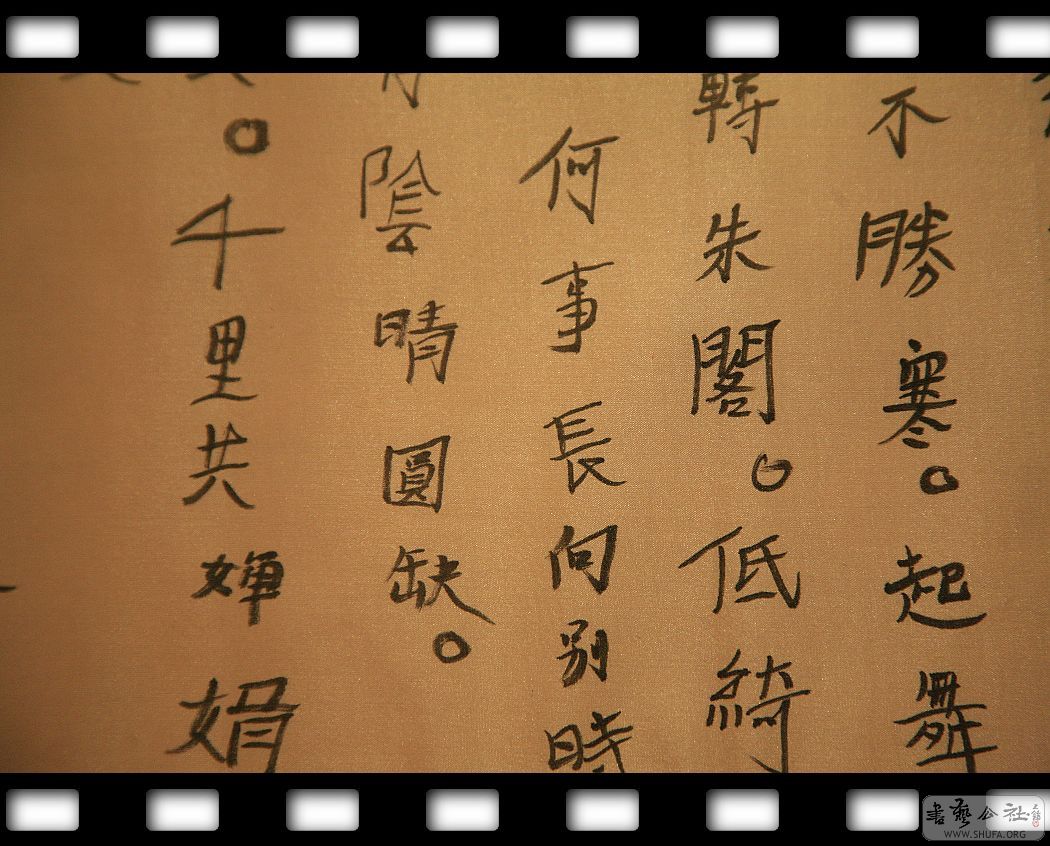 不勝寒。起舞
轉朱閣。低綺
何事長向別時
陰晴圓缺。
。千里共嬋娟
書藝公社
WWW.SHUFA.ORG